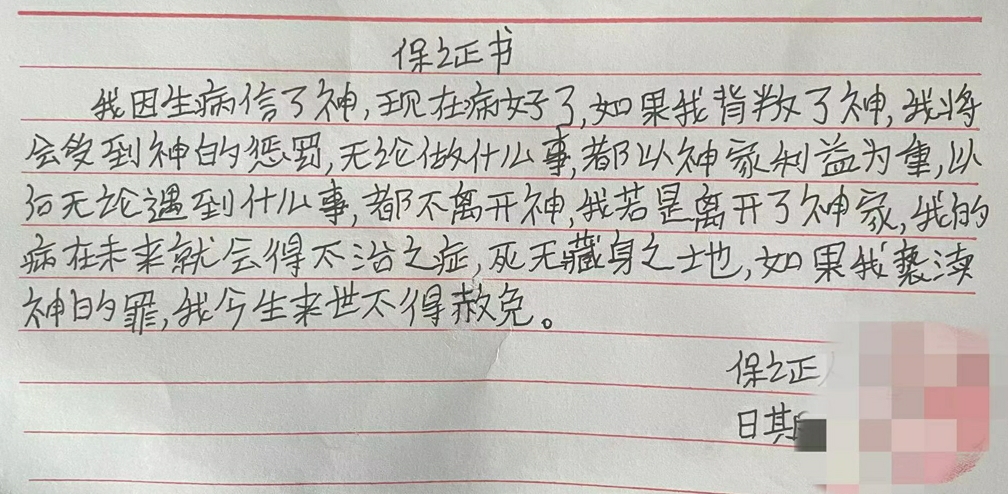 保证书
我因生病信了神,现在病好了,如果我背叛了神,我将
会受到神的惩罚,无论做什么事,都以神家利益为重,以
后无论遇到什么事,都不离开神,我若是离开了神家,我的
病在未来就会得不治之症,死无藏身之地,如果我亵渎
神的罪,我今生来世不得赦免。
保证
日期